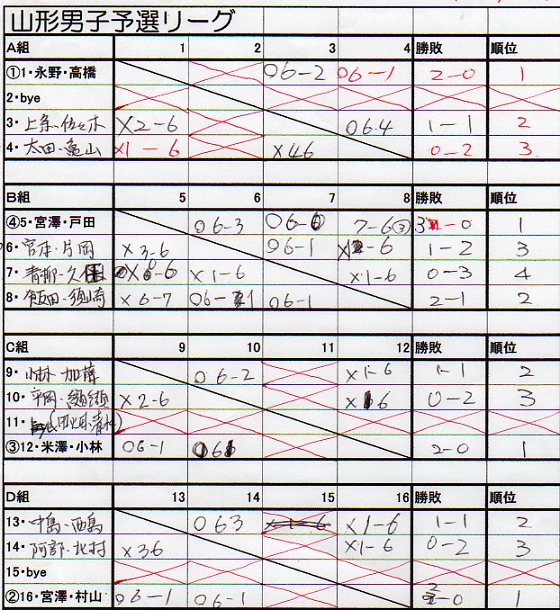 山形男子予選リーグ
A組 1 2 3 4 勝敗 順位
①1・永野・高橋 O6-2 O6-1 2-0 1
2・bye
3・上条・佐々木 X2-6 O6.4 1-1 2
4・太田・亀山 X1-6 X46 0-2 3
B組 5 6 7 8 勝敗 順位
④5・宮澤・戸田 O6-3 O6-0 7-6③ 3-0 1
6・宮本・片岡 X3.6 O6-1 X-6 1-2 3
7・青柳・久保 X0-6 X1-6 X1-6 0-3 4
8・飯田・須崎 X6-7 O6-1 O6-1 2-1 2
C組 9 10 11 12 勝敗 順位
9・小林・加藤 O6-2 X1-6 1-1 2
10・平岡・ X2-6 X16 0-2 3
11・
③12・米澤・小林 O6-1 O61 2-0 1
D組 13 14 15 16 勝敗 順位
13・中島・西島 O63 X1-6 1-1 2
14・阿部・北村 X36 X1-6 0-2 3
15・bye
②16・宮澤・村山 O6-1 O6-1 2-0 1